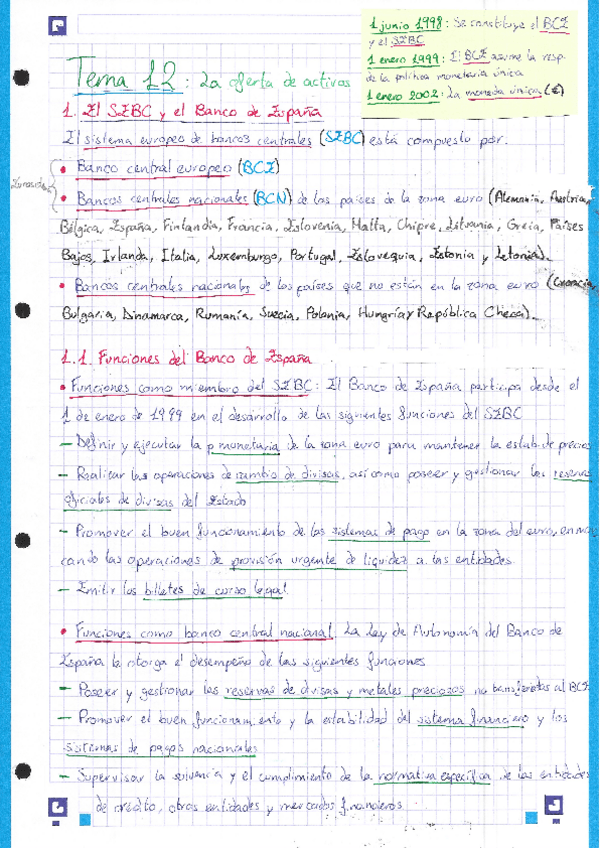 1 junio 1998: Se constituye el BCE
y el SEBC
1 enero 1999: El BCE asume la resp.
de la política monetaria única
1 enero 2002: La moneda única (€)
Tema 12: La oferta de activos
1. El SEBC y el Banco de España
El sistema europeo de bancos centrales (SEBC) está compuesto por:
• Banco central europeo (BCE)
Eurosistema
• Bancos centrales nacionales (BCN) de los países de la zona euro (Alemania, Austria,
Bélgica, España, Finlandia, Francia, Eslovenia, Malta, Chipre, Lituania, Grecia, Países
Bajos, Irlanda, Italia, Luxemburgo, Portugal, Eslovaquia, Estonia y Letonia).
• Bancos centrales nacionales de los países que no están en la zona euro (Croacia,
Bulgaria, Dinamarca, Rumanía, Suecia, Polonia, Hungría y República Checa).
1.1. Funciones del Banco de España
• Funciones como miembro del SEBC: El Banco de España participa desde el
1 de enero de 1999 en el desarrollo de las siguientes funciones del SEBC
— Definir y ejecutar la p. monetaria de la zona euro para mantener la estab. de precios
— Realizar las operaciones de cambio de divisas, así como poseer y gestionar las reservas
oficiales de divisas del Estado
— Promover el buen funcionamiento de los sistemas de pago en la zona del euro, enmar
cando las operaciones de provisión urgente de liquidez a las entidades.
— Emitir los billetes de curso legal
• Funciones como banco central nacional. La Ley de Autonomía del Banco de
España le otorga el desempeño de las siguientes funciones
— Poseer y gestionar las reservas de divisas y metales preciosos no transferidos al BCE
— Promover el buen funcionamiento y la estabilidad del sistema financiero y los
sistemas de pagos nacionales
— Supervisar la solvencia y el cumplimiento de la normativa específica de las entidades
de crédito, otras entidades y mercados financieros